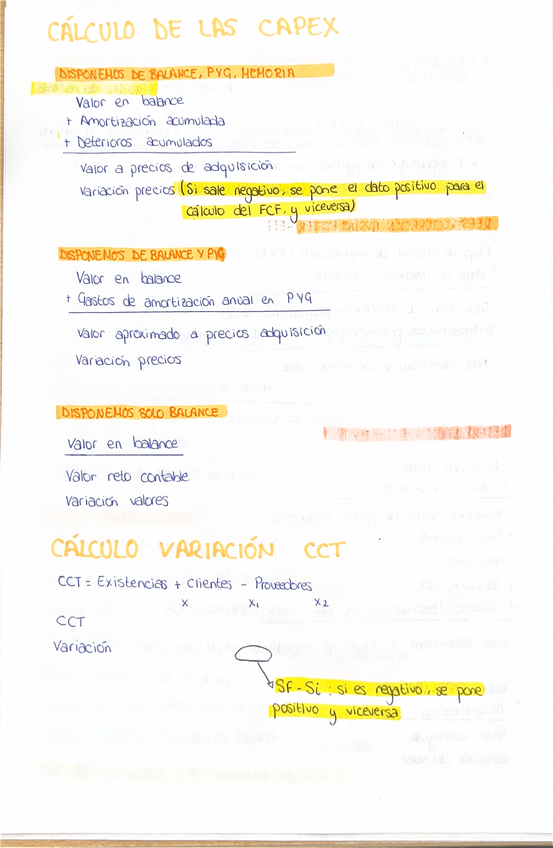 CÁLCULO DE LAS CAPEX
DISPONEMOS DE BALANCE, PYG, MEMORIA
Valor en balance
+ Amortización acumulada
+ Deterioros acumulados
Valor a precios de adquisición
Variación precios (Si sale negativo, se pone el dato positivo para el
cálculo del FCF, y viceversa)
DISPONEMOS DE BALANCE Y PYG
Valor en balance
+ Gastos de amortización anual en PYG
Valor aproximado a precios adquisición
Variación precios
DISPONEMOS SOLO BALANCE
Valor en balance
Valor neto contable
Variación valores
CÁLCULO VARIACIÓN CCT
CCT = Existencias + Clientes - Proveedores
x x1 x2
CCT
Variación
SF - Si : si es negativo, se pone
positivo y viceversa